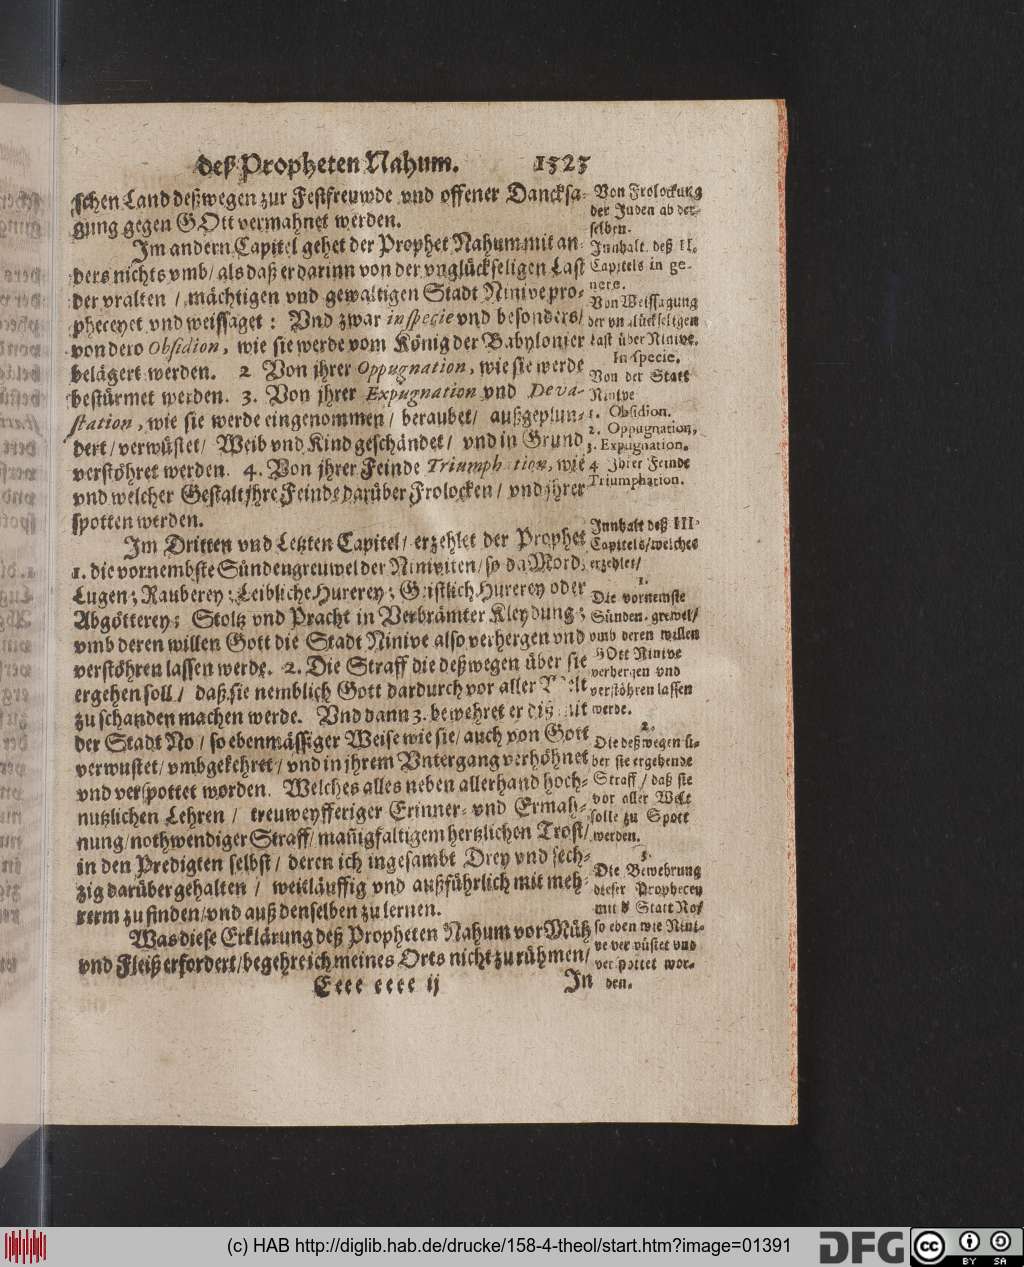 deß Propheten Nahum. 1323
schen Land deßwegen zur Festfreuwde vnd offener Dancksa-
gung gegen GOtt vermahnet werden.
Im andern Capitel gehet der Prophet Nahum mit an-
ders nichts vmb/ als daß er darinn von der vnglückseligen Last
der vralten / mächtigen vnd gewaltigen Stadt Ninive pro-
pheceyet vnd weissaget : Vnd zwar in specie vnd besonders/
von dero Obsidion, wie sie werde vom König der Babylonier
belägert werden. 2 Von jhrer Oppugnation, wie sie werde
bestürmet werden. 3. Von jhrer Expugnation vnd Deva-
station, wie sie werde eingenommen/ beraubet/ außgeplün-
dert/ verwüstet/ Weib vnd Kind geschändet/ vnd in Grund
verstöhret werden. 4. Von jhrer Feinde Triumphation, wie
vnd welcher Gestalt jhre Feinde darüber Frolocken/ vnd jhrer
spotten werden.
Im Dritten vnd Letzten Capitel/ erzehlet der Prophet
1. die vornembste Sündengreuwel der Niniviten/ so da Mord;
Lugen; Rauberey; Leibliche Hurerey; Geistlich Hurerey oder
Abgötterey; Stoltz vnd Pracht in Verbrämter Kleydung;
vmb deren willen Gott die Stadt Ninive also verhergen vnd
verstöhren lassen werde. 2. Die Straff die deßwegen über sie
ergehen soll/ daß sie nemblich Gott dardurch vor aller Welt
zu schanden machen werde. Vnd dann 3. bewehret er diß mit
der Stadt No/ so ebenmässiger Weise wie sie/ auch von Gott
verwustet/ vmbgekehret/ vnd in jhrem Vntergang verhöhnet
vnd verspottet worden. Welches alles neben allerhand hoch-
nutzlichen Lehren / treuweyfferiger Erinner- vnd Ermah-
nung/ nothwendiger Straff/ mañigfaltigem hertzlichen Trost/
in den Predigten selbst/ deren ich ingesambt Drey vnd sech-
zig darüber gehalten / weitläuffig vnd außführlich mit meh-
rerm zu finden/ vnd auß denselben zu lernen.
Was diese Erklärung deß Propheten Nahum vor Müh
vnd Fleiß erfordert/ begehre ich meines Orts nicht zu rühmen/
Eeee eeee ij In
Von Frolockung
der Juden ab der-
selben.
Innhalt deß II.
Capitels in ge-
nere.
Von Weissagung
der vnglückseligen
Last über Ninive.
In specie.
Von der Statt
Ninive
1. Obsidion.
2. Oppugnation,
3. Expugnation.
4 Jhrer Feinde
Triumphation.
Innhalt deß III.
Capitels/ welches
erzehlet/
1.
Die vornemste
Sünden-grewel/
vmb deren willen
GOtt Ninive
verhergen vnd
verstöhren lassen
werde.
2.
Die deßwegen ü-
ber sie ergehende
Straff/ daß sie
vor aller Welt
solle zu Spott
werden.
3.
Die Bewehrung
dieser Prophecey
mit d Statt No/
so eben wie Nini-
ve verwüstet vnd
verspottet wor-
den.
(c) HAB http://diglib.hab.de/drucke/158-4-theol/start.htm?image=01391
DFG
cc
BY SA